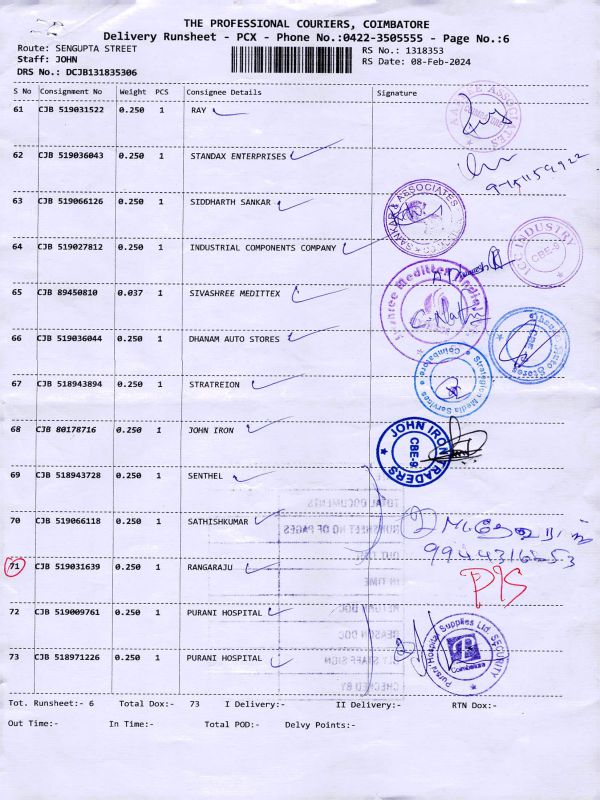 THE PROFESSIONAL COURIERS, COIMBATORE
Delivery Runsheet - PCX - Phone No.:0422-3505555 - Page No.:6
Route: SENGUPTA STREET RS No.: 1318353
Staff: JOHN RS Date: 08-Feb-2024
DRS No.: DCJB131835306
S No Consignment No Weight PCS Consignee Details Signature
61 CJB 519031522 0.250 1 RAY
AA TREE ASSOCIATES
62 CJB 519036043 0.250 1 STANDAX ENTERPRISES
63 CJB 519066126 0.250 1 SIDDHARTH SANKAR
SANKAR & ASSOCIATES
64 CJB 519027812 0.250 1 INDUSTRIAL COMPONENTS COMPANY
ICC INDUSTRY
CBE-9
65 CJB 89450810 0.037 1 SIVASHREE MEDITTEX
C. Nathi
66 CJB 519036044 0.250 1 DHANAM AUTO STORES
Dhanam Auto Stores
CBE
67 CJB 518943894 0.250 1 STRATREION
Strategion Media Services
Coimbatore
68 CJB 80178716 0.250 1 JOHN IRON
JOHN IRON TRADERS
CBE-9
69 CJB 518943728 0.250 1 SENTHEL
TOTAL DOCUMENTS
70 CJB 519066118 0.250 1 SATHISHKUMAR
RUNSHEET NO OF PAGES
OUT TIME
71 CJB 519031639 0.250 1 RANGARAJU
P/S
IN TIME
RETURN DOC
72 CJB 519009761 0.250 1 PURANI HOSPITAL
Purani Hospital Supplies Ltd. SECURITY
Coimbatore
REASON DOC
73 CJB 518971226 0.250 1 PURANI HOSPITAL
STAFF SIGN
CHECKED BY
Tot. Runsheet:- 6 Total Dox:- 73 I Delivery:- II Delivery:- RTN Dox:-
Out Time:- In Time:- Total POD:- Delvy Points:-